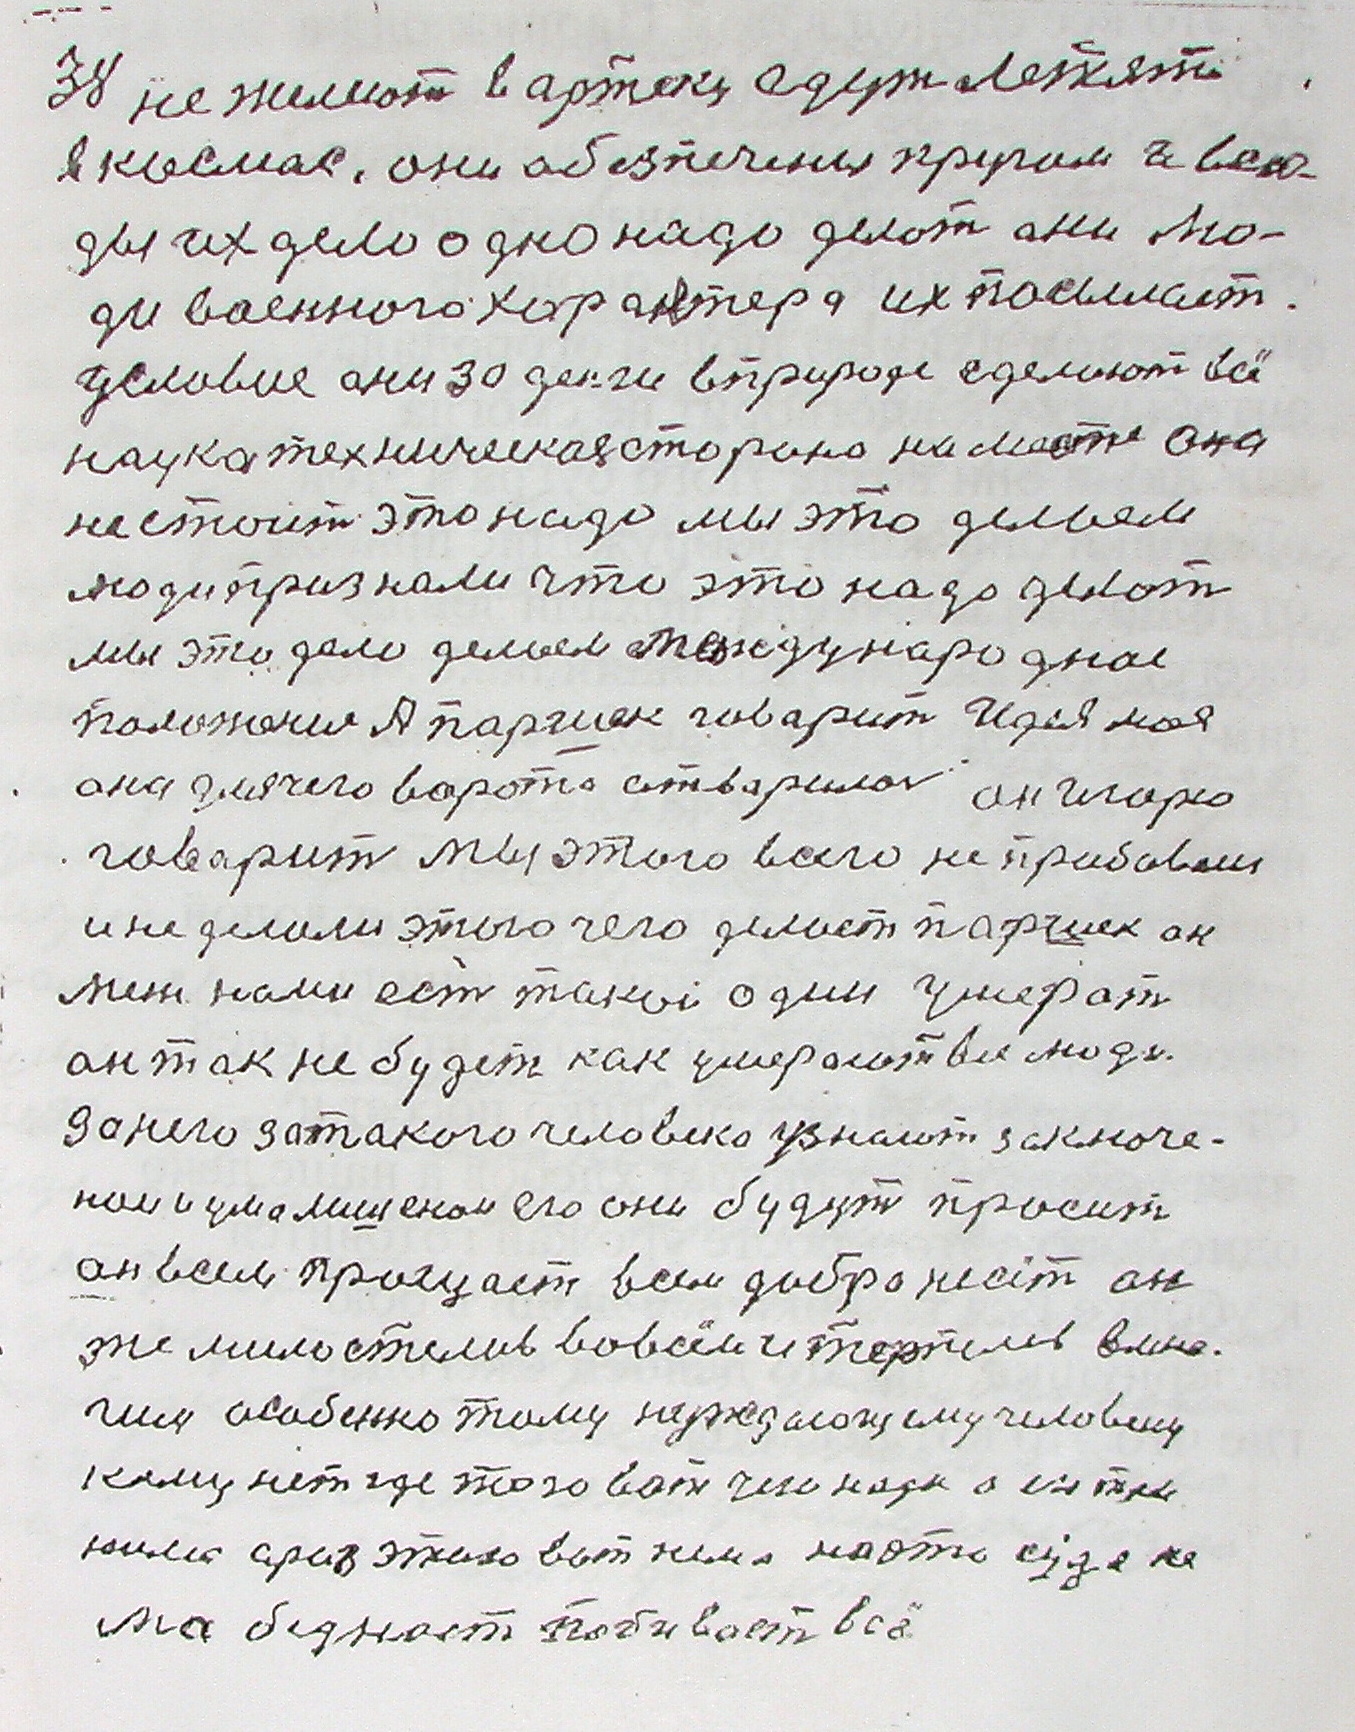 38 не жилеют в артеку едут летяти
в космас. они абезпечены кругом и всю-
ды их дело одно надо делот они лю-
ди военного характера их посылает.
условие они 30 денги в природе сделают всё
наука техническая сторона на месте она
не стоит это надо мы это делоем
люди признали что это надо делот
мы это дело делоем международное
положения А паршек говарит Идея моя
она для чего ворота атварила он Игорю
говарит мы этого всего не прибавили
и не делали этого чего делает паршек он
меж нами есть такой один умерат
он так не будет как умерают все люди.
За него за такого человека узнают заключе-
нои и ума лишенои его они будут просит
он всем прощает всем добро несёт он
же милостелив во всём и терпелив в мно-
гим особенно тому нуждающему человеку
кому нет где того вот чего надо а
этого вот нема
ма беднаст побивает всё